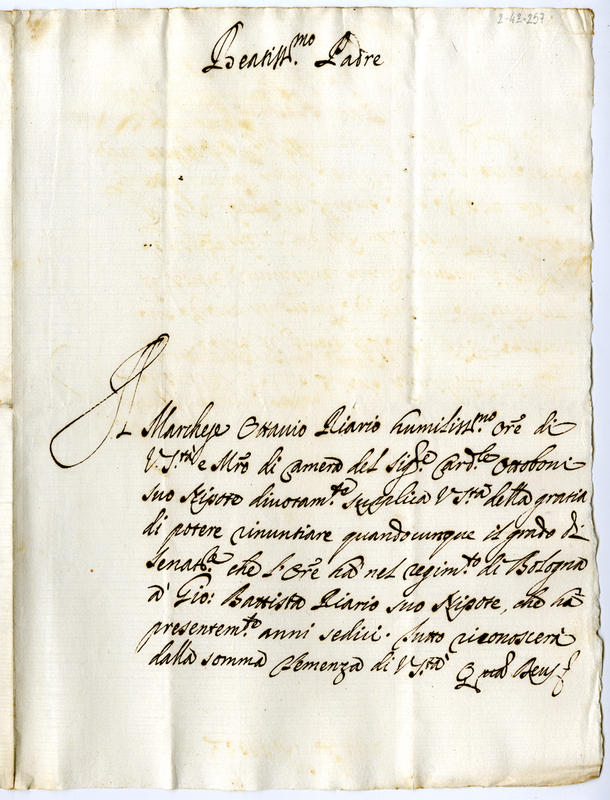 2-42-257
Beatiss.mo Padre
Il Marchese Ottavio Riario humiliss.mo Ore di
V. S.tà e Mro di Camera del Sig.r Card.le Ottoboni
suo Nipote divotam.te supplica V. S.tà della gratia
di potere rinuntiare quandocunque il grado di
Senat.re che l'Ore hà nel regim.to di Bologna
à Gio: Battista Riario suo Nipote, che hà
presentem.te anni sedici. Tutto riconoscerà
dalla somma Clemenza di V. S.tà Quam Deus